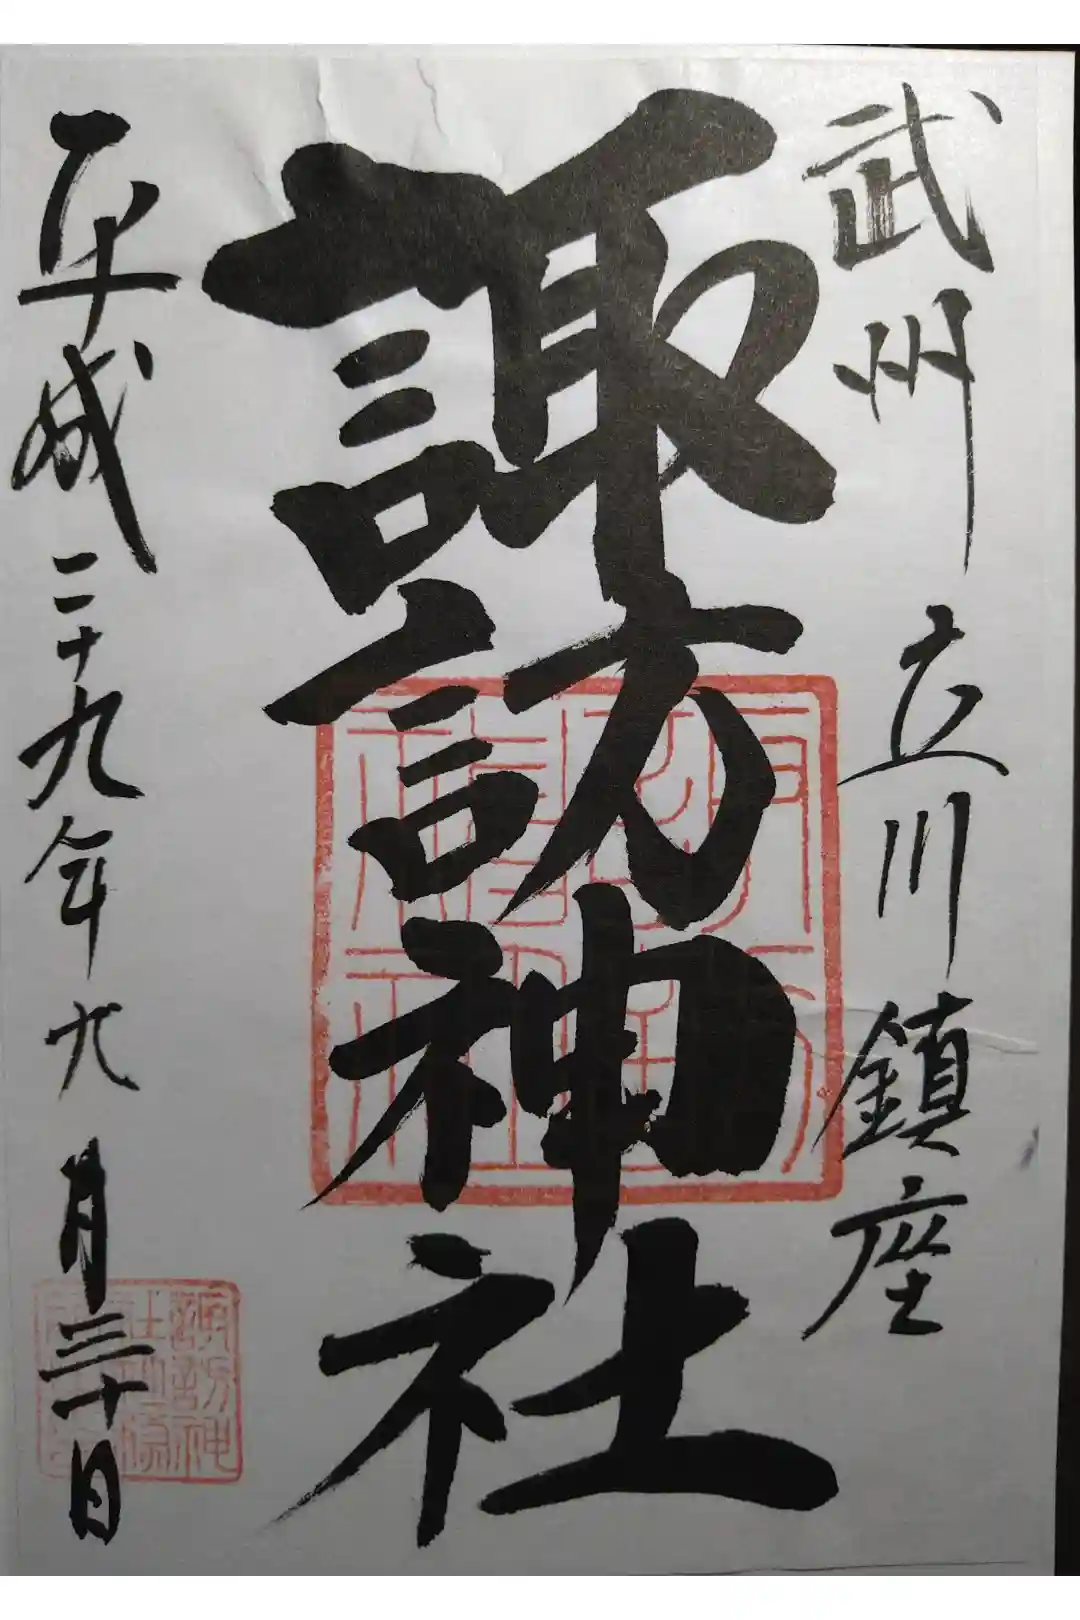 武州立川鎮座
諏訪神社
平成二十九年九月三十日